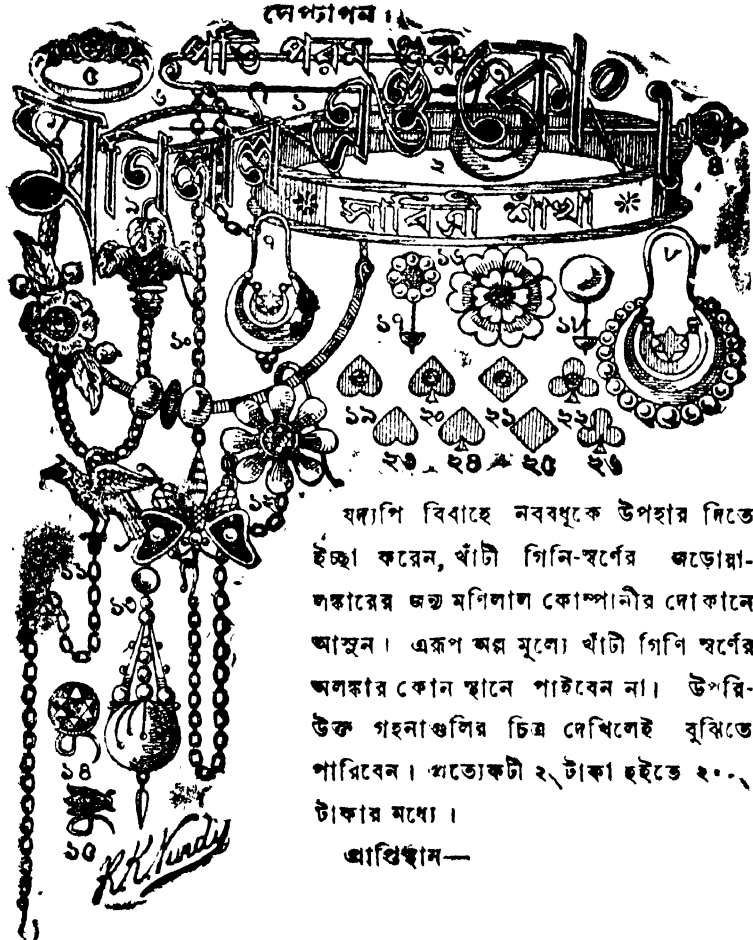 পতি পরম গুরু
মণিলাল এণ্ড কোং
সাবিত্রী শাঁখা
৫
৬
১
২
৭
৮
৯
১০
১৬
১৭
১৮
১৯
২০
২১
২২
২৩
২৪
২৫
২৬
১২
১১
১৩
১৪
১৫
যদ্যপি বিবাহে নববধূকে উপহার দিতে
ইচ্ছা করেন, খাঁটী গিনি-স্বর্ণের জড়োয়া-
লঙ্কারের জন্য মণিলাল কোম্পানীর দোকানে
আসুন। এরূপ অল্প মূল্যে খাঁটী গিণি স্বর্ণের
অলঙ্কার কোন স্থানে পাইবেন না। উপরি-
উক্ত গহনাগুলির চিত্র দেখিলেই বুঝিতে
পারিবেন। প্রত্যেকটী ২৲ টাকা হইতে ২০০৲
টাকার মধ্যে।
প্রাপ্তিস্থান—
R.K. Nundy